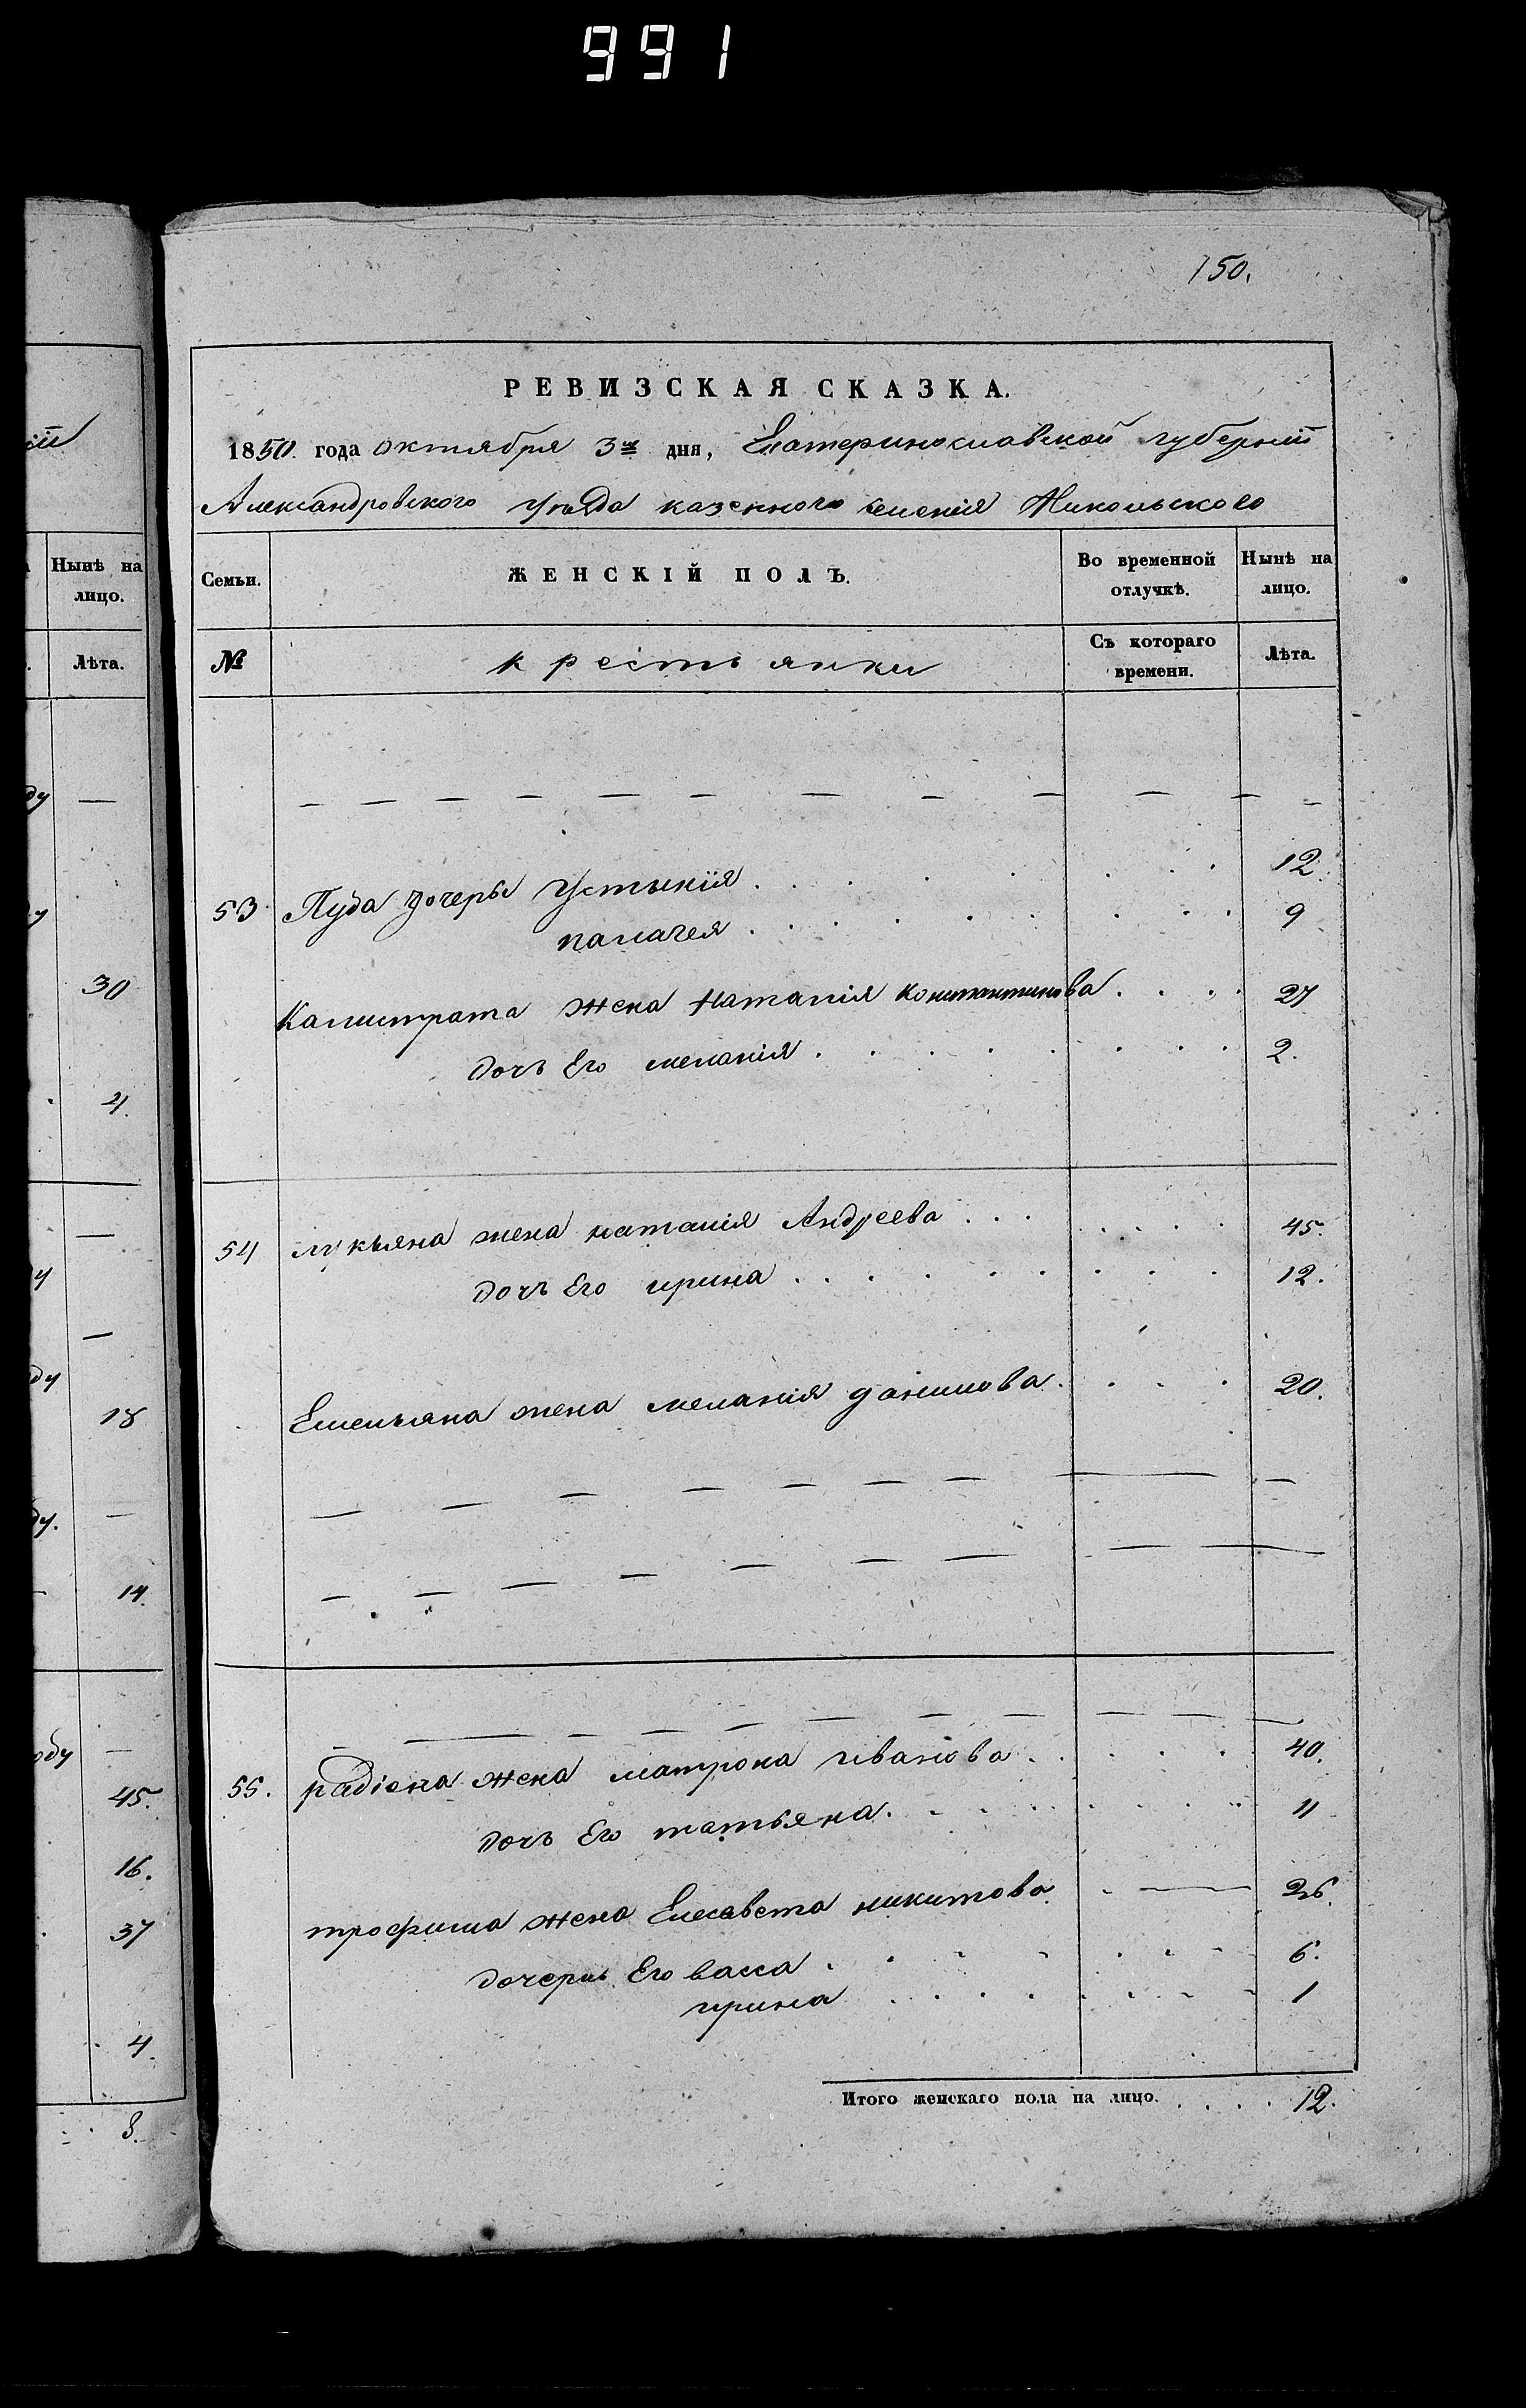 991
150.
РЕВИЗСКАЯ СКАЗКА.
1850. года октября 3го дня, Екатеринославской губерніи
Александровского уѣзда казенного селенія Никольского
Семьи.
ЖЕНСКІЙ ПОЛЪ.
Во временной отлучкѣ.
Нынѣ на лицо.
№
крестьянки
Съ котораго времени.
Лѣта.
53 Пуда дочеры Устынія 12
палагея 9
Калистрата жена Наталія Константинова 27
дочь Его меланія 2.
54 лукьяна жена наталія Андреева 45.
дочь Его ирина 12.
Емельяна жена меланія данилова 20.
55. радіона жена матрона иванова 40.
дочь Его татьяна 11
трофима жена Елисавета никитова 26.
дочери Его васса 6.
ирина 1
Итого женскаго пола на лицо. 12.
Нынѣ на лицо.
Лѣта.
ду —
30
4.
ду
18
ду.
14.
оду
45.
16.
37
4.
8.